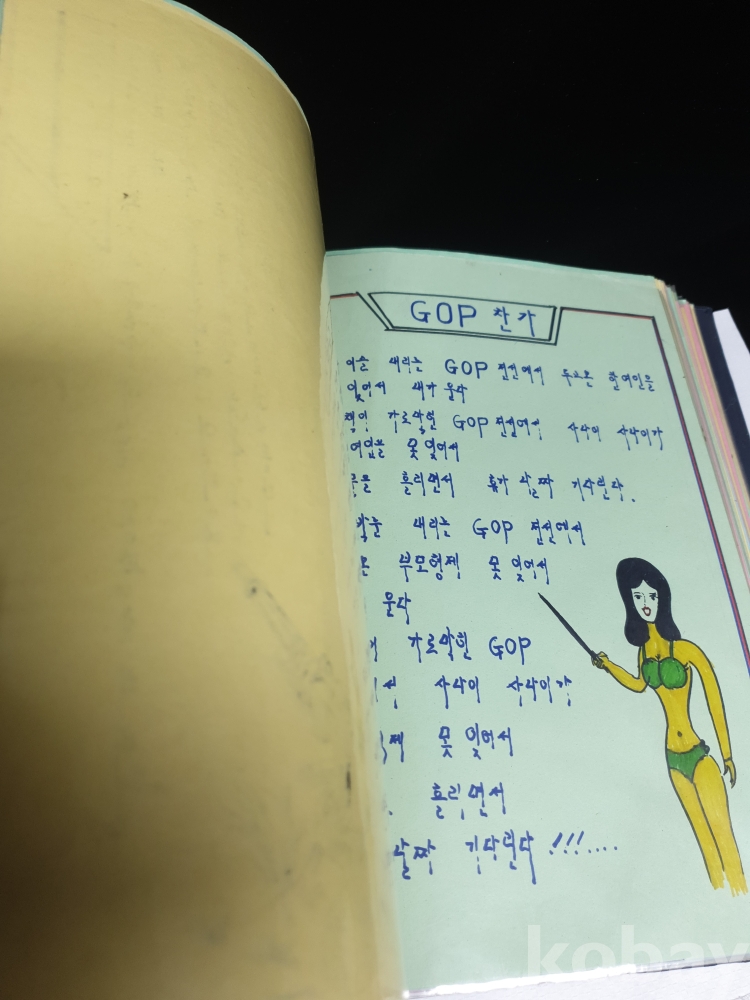 GOP 찬가
이슬 내리는 GOP 전선에서 두고온 한여인을
잊어서 내가 울다
가로막힌 GOP 전선에서 사나이 사나이가
여인을 못 잊어서
흘리면서 휴가 날짜 기다린다.
내리는 GOP 전선에서
부모형제 못 잊어서
울다
가로막힌 GOP
사나이 사나이가
못 잊어서
흘리면서
날짜 기다린다 !!!....
kobay